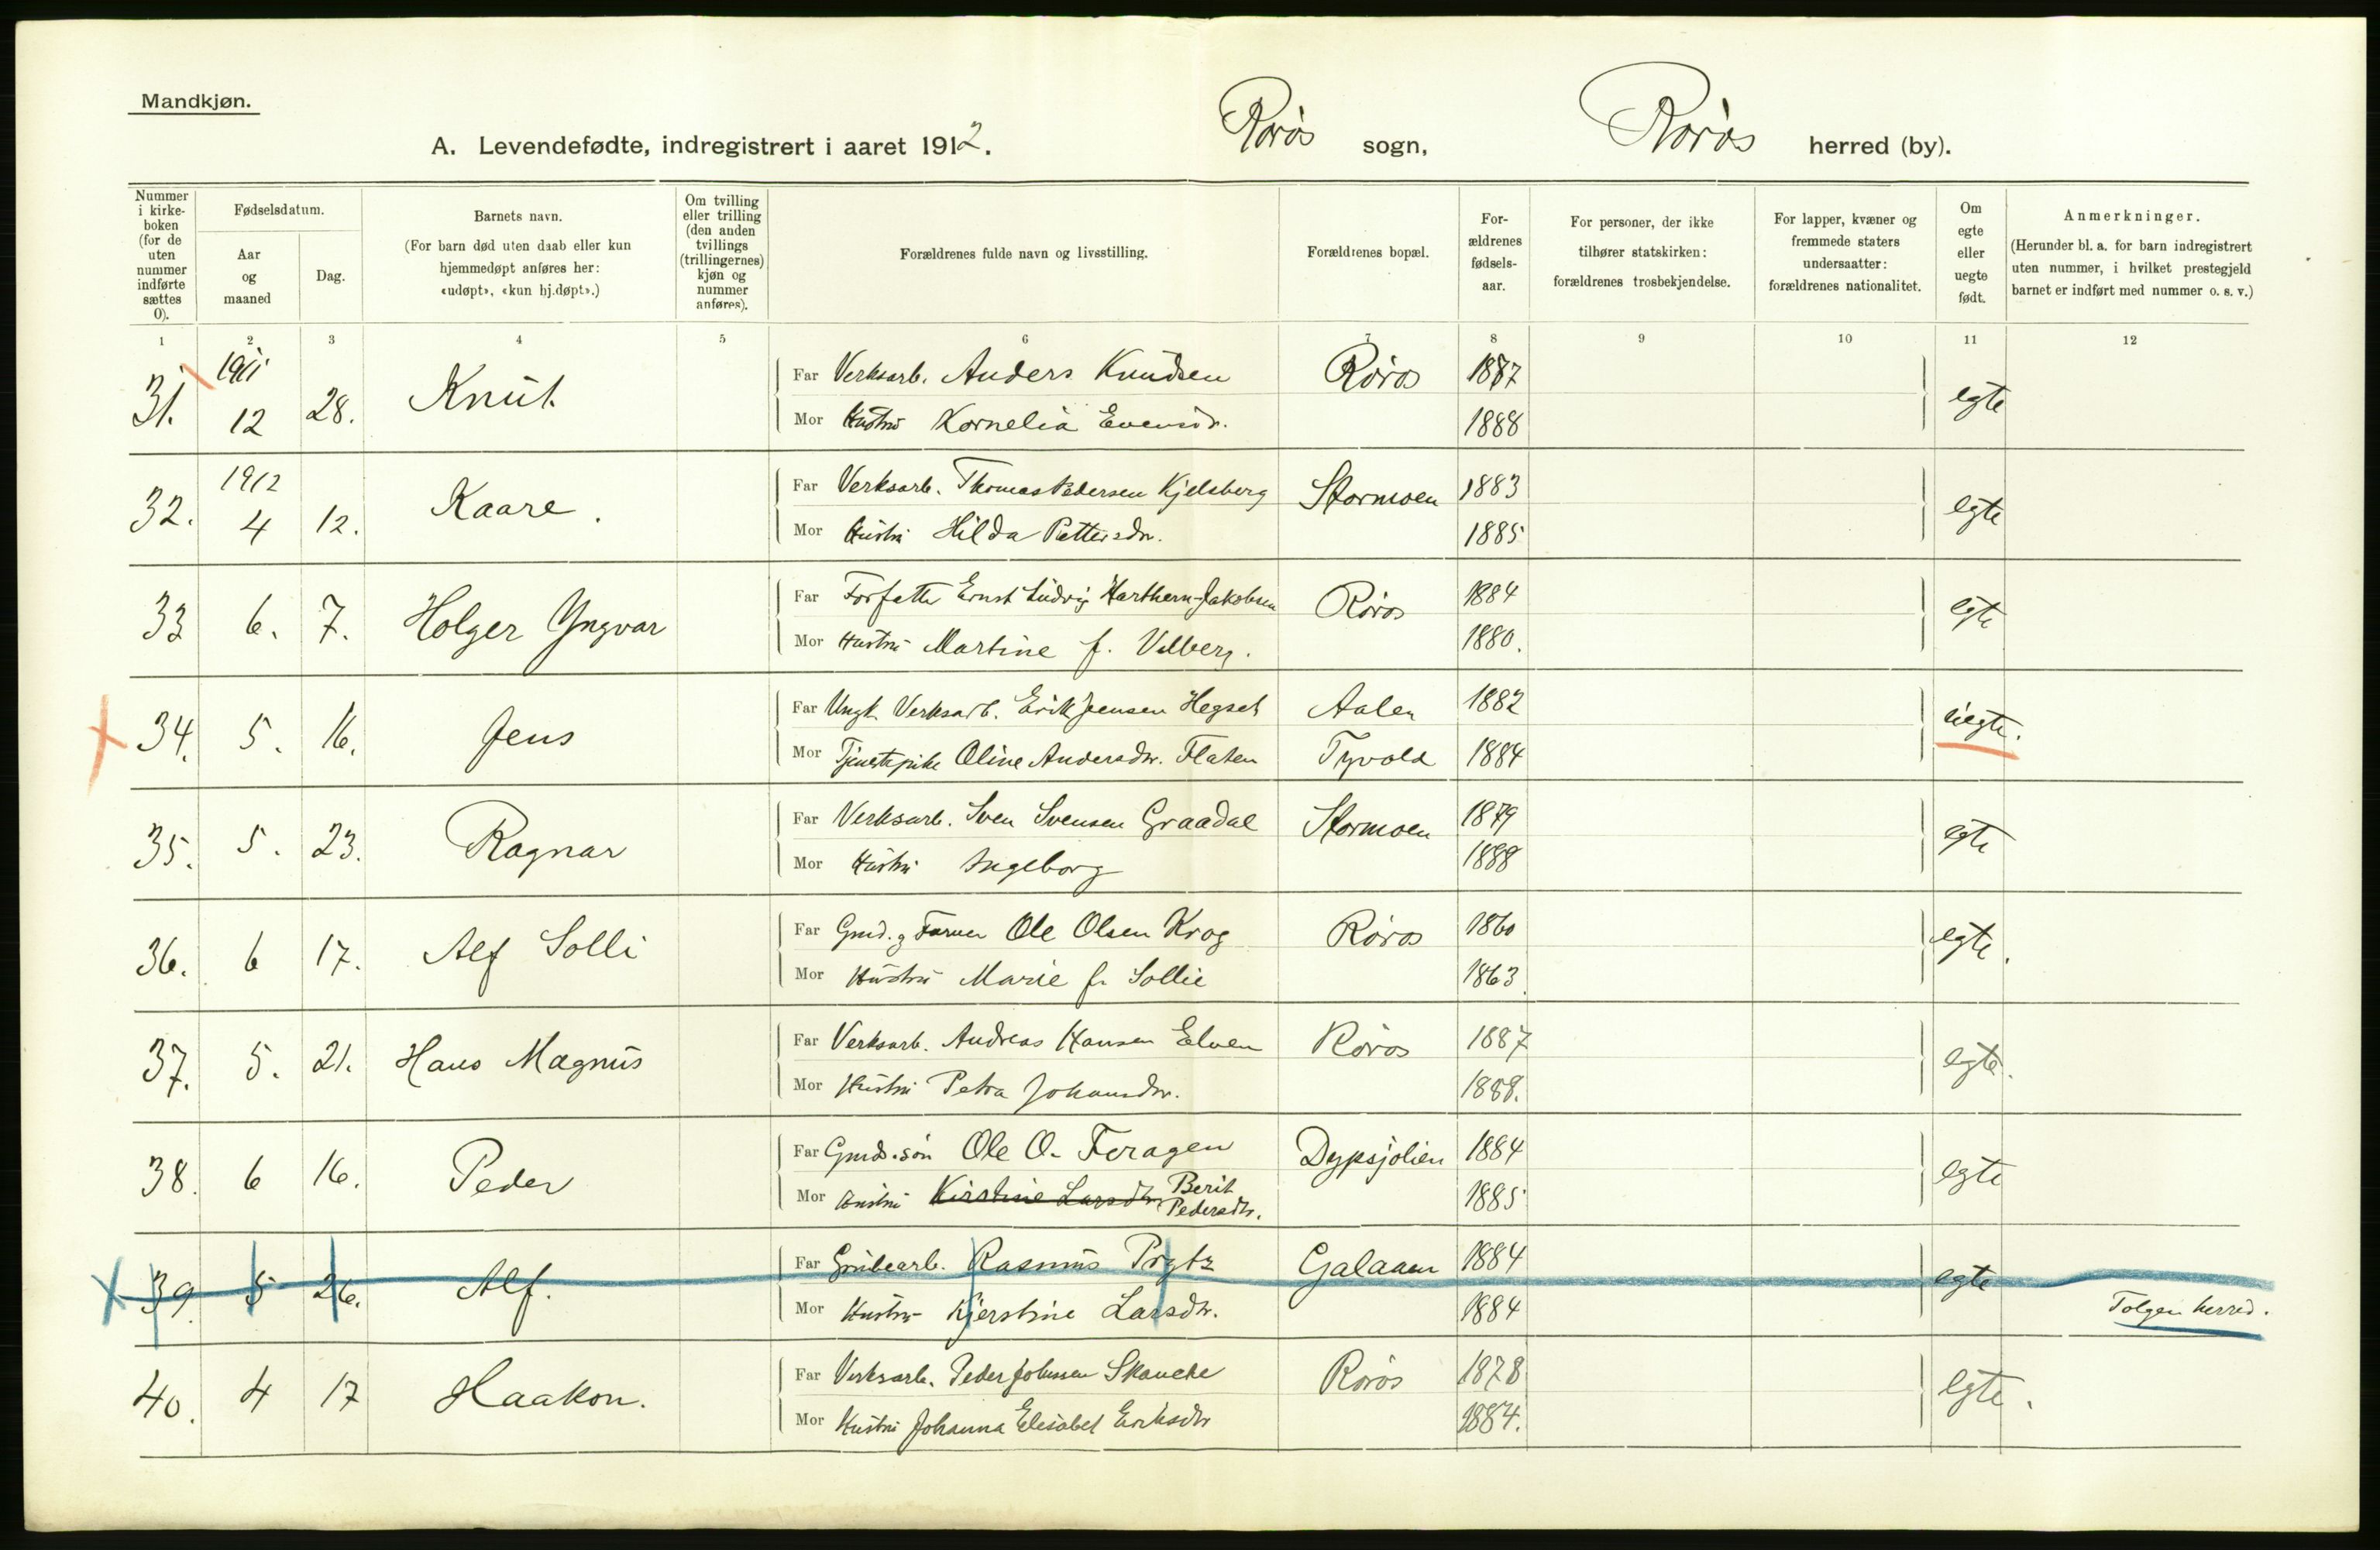 Mandkjøn.
A. Levendefødte, indregistrert i aaret 1912. Røros sogn, Røros herred (by).
Nummer i kirke-boken (for de uten nummer indførte sættes 0).
Fødselsdatum.
Aar og maaned
Dag.
Barnets navn.
(For barn død uten daab eller kun hjemmedøpt anføres her: «udøpt», «kun hj.døpt».)
Om tvilling eller trilling (den anden tvillings (trillingernes) kjøn og nummer anføres).
Forældrenes fulde navn og livsstilling.
Forældrenes bopæl.
For-ældrenes fødsels-aar.
For personer, der ikke tilhører statskirken: forældrenes trosbekjendelse.
For lapper, kvæner og fremmede staters undersaatter: forældrenes nationalitet.
Om egte eller uegte født.
Anmerkninger.
(Herunder bl. a. for barn indregistrert uten nummer, i hvilket prestegjeld barnet er indført med nummer o. s. v.)
1 2 3 4 5 6 7 8 9 10 11 12
31. 1911 12 28. Knut. Far Verksarb. Anders Knudsen Røros 1887 egte
Mor Hustru Kornelia Evensdr. 1888
32. 1912 4 12. Kaare. Far Verksarb. Thomas Pedersen Kjelsberg Stormoen 1883 egte
Mor Hustru Hilda Pettersdr. 1885
33 6. 7. Holger Yngvar Far Forfatter Ernst Ludvig Harthern-Jakobsen Røros 1884 egte
Mor Hustru Martine f. Velberg. 1880.
34. 5. 16. Jens Far Ungk. Verksarb. Erik Jensen Hegset Aalen 1882 uegte.
Mor Tjenestepike Oline Andersdr. Flaten Tyvold 1884
35. 5. 23. Ragnar Far Verksarb. Sven Svensen Graadal Stormoen 1879 egte
Mor Hustru Ingeborg 1888
36. 6 17. Alf Solli Far Gmd. g Farver Ole Olsen Krog Røros 1860 egte.
Mor Hustru Marie f. Sollie 1863.
37. 5. 21. Hans Magnus Far Verksarb. Andreas Hansen Elven Røros 1887 egte.
Mor Hustru Petra Johansdr. 1888.
38. 6 16. Peder Far Gmds.søn Ole O. Feragen Dypsjølien 1884 egte
Mor Hustru Kirstine Larsdtr. Berit Pedersdtr. 1885
39. 5 26. Alf. Far Grubearb. Rasmus Prytz Galaaen 1884 egte
Mor Hustru Kjerstine Larsdtr. 1884 Tolgen herred.
40. 4 17 Haakon. Far Verksarb. Peder Johnsen Skancke Røros 1878 egte.
Mor Hustru Johanna Elisabet Eriksdtr 1884.